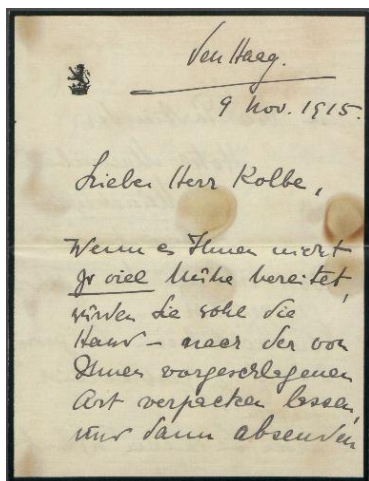 Den Haag.
9 Nov. 1915.
Lieber Herr Kolbe,
Wenn es Ihnen nicht
so viel Mühe bereitet,
würden Sie wohl die
Hand – nach der von
Ihnen vorgeschlagenen
Art verpacken lassen,
und dann absenden